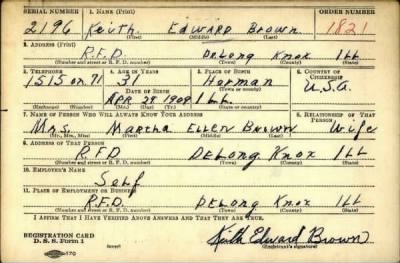 SERIAL NUMBER 1. NAME (Print) ORDER NUMBER
2196 Keith EDWARD Brown 1821
(First) (Middle) (Last)
2. ADDRESS (Print)
R.F.D. DeLong Knox Ill
(Number and street or R. F. D. number) (Town) (County) (State)
3. TELEPHONE 4. AGE IN YEARS 5. PLACE OF BIRTH 6. COUNTRY OF CITIZENSHIP
1515 on 71 31 Herman U.S.A.
(Town or county)
DATE OF BIRTH
APR 29 1909 ILL.
(Exchange) (Number) (Mo.) (Day) (Yr.) (State or country)
7. NAME OF PERSON WHO WILL ALWAYS KNOW YOUR ADDRESS 8. RELATIONSHIP OF THAT PERSON
Mrs. Martha Ellen Brown Wife
(Mr., Mrs., Miss) (First) (Middle) (Last)
9. ADDRESS OF THAT PERSON
R.F.D DeLong Knox Ill
(Number and street or R. F. D. number) (Town) (County) (State)
10. EMPLOYER'S NAME
Self
11. PLACE OF EMPLOYMENT OR BUSINESS
R.F.D. DeLong Knox Ill
(Number and street or R. F. D. number) (Town) (County) (State)
I AFFIRM THAT I HAVE VERIFIED ABOVE ANSWERS AND THAT THEY ARE TRUE.
REGISTRATION CARD
D. S. S. Form 1
Keith Edward Brown
(Registrant's signature)